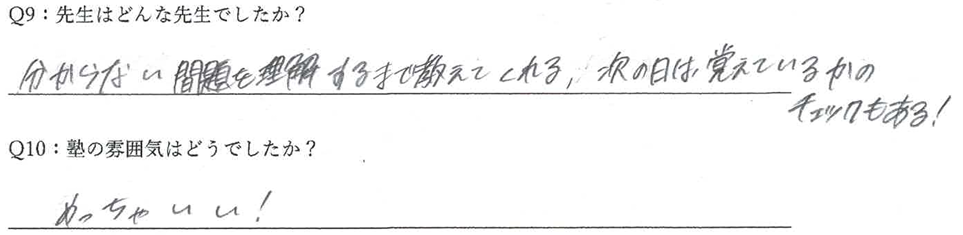 Q9：先生はどんな先生でしたか？
分からない問題を理解するまで教えてくれる, 次の日は覚えているかの
チェックもある！
Q10：塾の雰囲気はどうでしたか？
めっちゃいい！